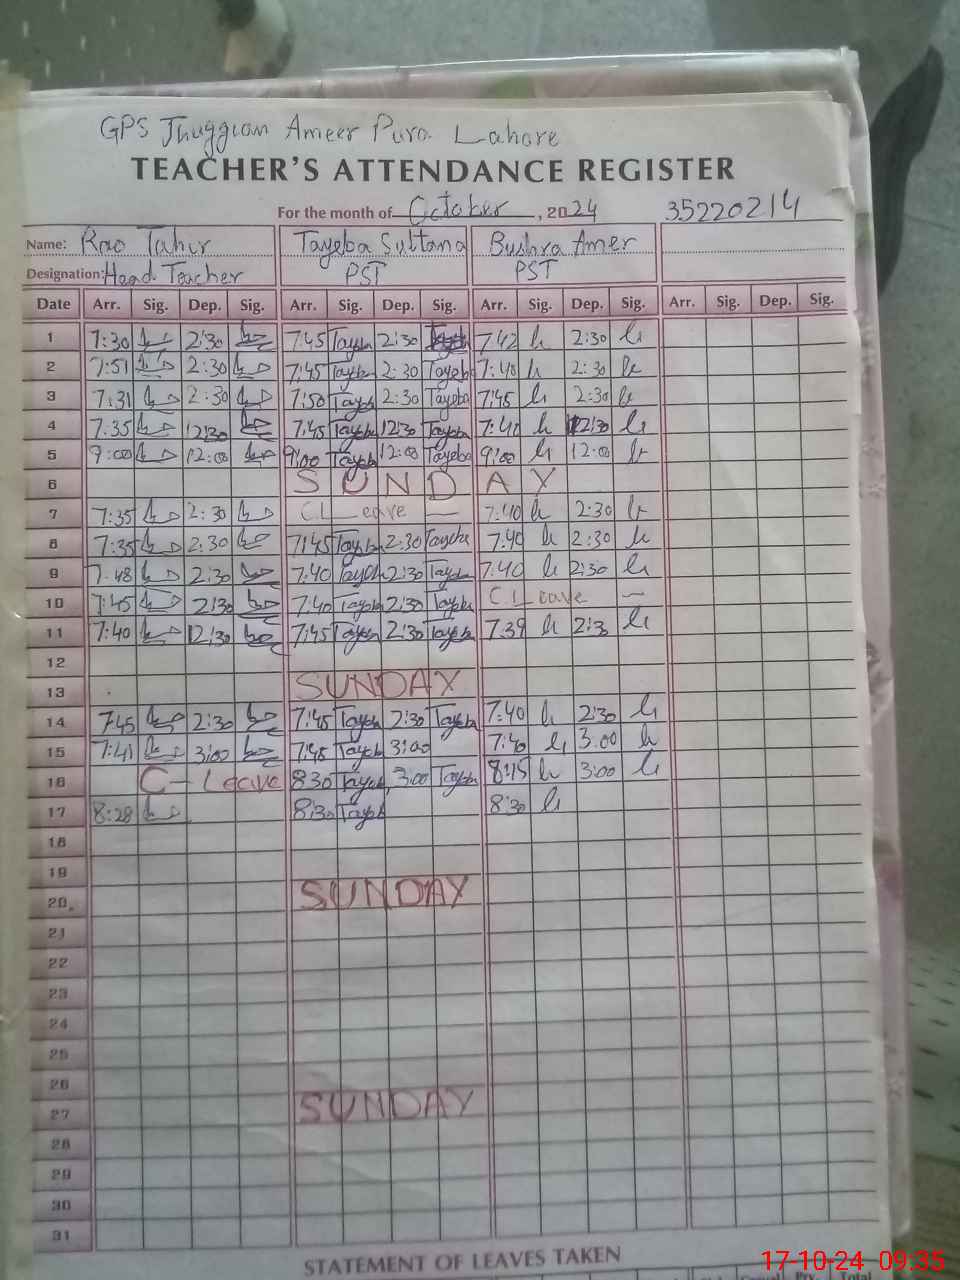 GPS Jhuggian Ameer Pura Lahore
TEACHER'S ATTENDANCE REGISTER
For the month of October, 2024 35220214
Name: Rao Tahir Tayeba Sultana Bushra Amer
Designation: Head Teacher PST PST
Date Arr. Sig. Dep. Sig. Arr. Sig. Dep. Sig. Arr. Sig. Dep. Sig. Arr. Sig. Dep. Sig.
1 7:30 2:30 7:45 Tayeba 2:30 7:42 2:30
2 7:51 2:30 7:45 Tayeba 2:30 Tayeba 7:40 2:30
3 7:31 2:30 7:50 Tayeba 2:30 Tayeba 7:45 2:30
4 7:35 12:30 7:45 Tayeba 12:30 Tayeba 7:40 12:30
5 9:00 12:00 9:00 Tayeba 12:00 Tayeba 9:00 12:00
6 SUNDAY
7 7:35 2:30 C.Leave 7:40 2:30
8 7:35 2:30 7:45 Tayeba 2:30 Tayeba 7:40 2:30
9 7:48 2:30 7:40 Tayeba 2:30 Tayeba 7:40 2:30
10 7:45 2:30 7:40 Tayeba 2:30 Tayeba C.Leave
11 7:40 12:30 7:45 Tayeba 2:30 Tayeba 7:39 2:3
12
13 SUNDAY
14 7:45 2:30 7:45 Tayeba 2:30 Tayeba 7:40 2:30
15 7:41 3:00 7:45 Tayeba 3:00 7:40 3:00
16 C-Leave 8:30 Tayeba 3:00 Tayeba 8:15 3:00
17 8:28 8:30 Tayeba 8:30
18
19
20 SUNDAY
21
22
23
24
25
26
27 SUNDAY
28
29
30
31
STATEMENT OF LEAVES TAKEN
17-10-24 09:35
Total